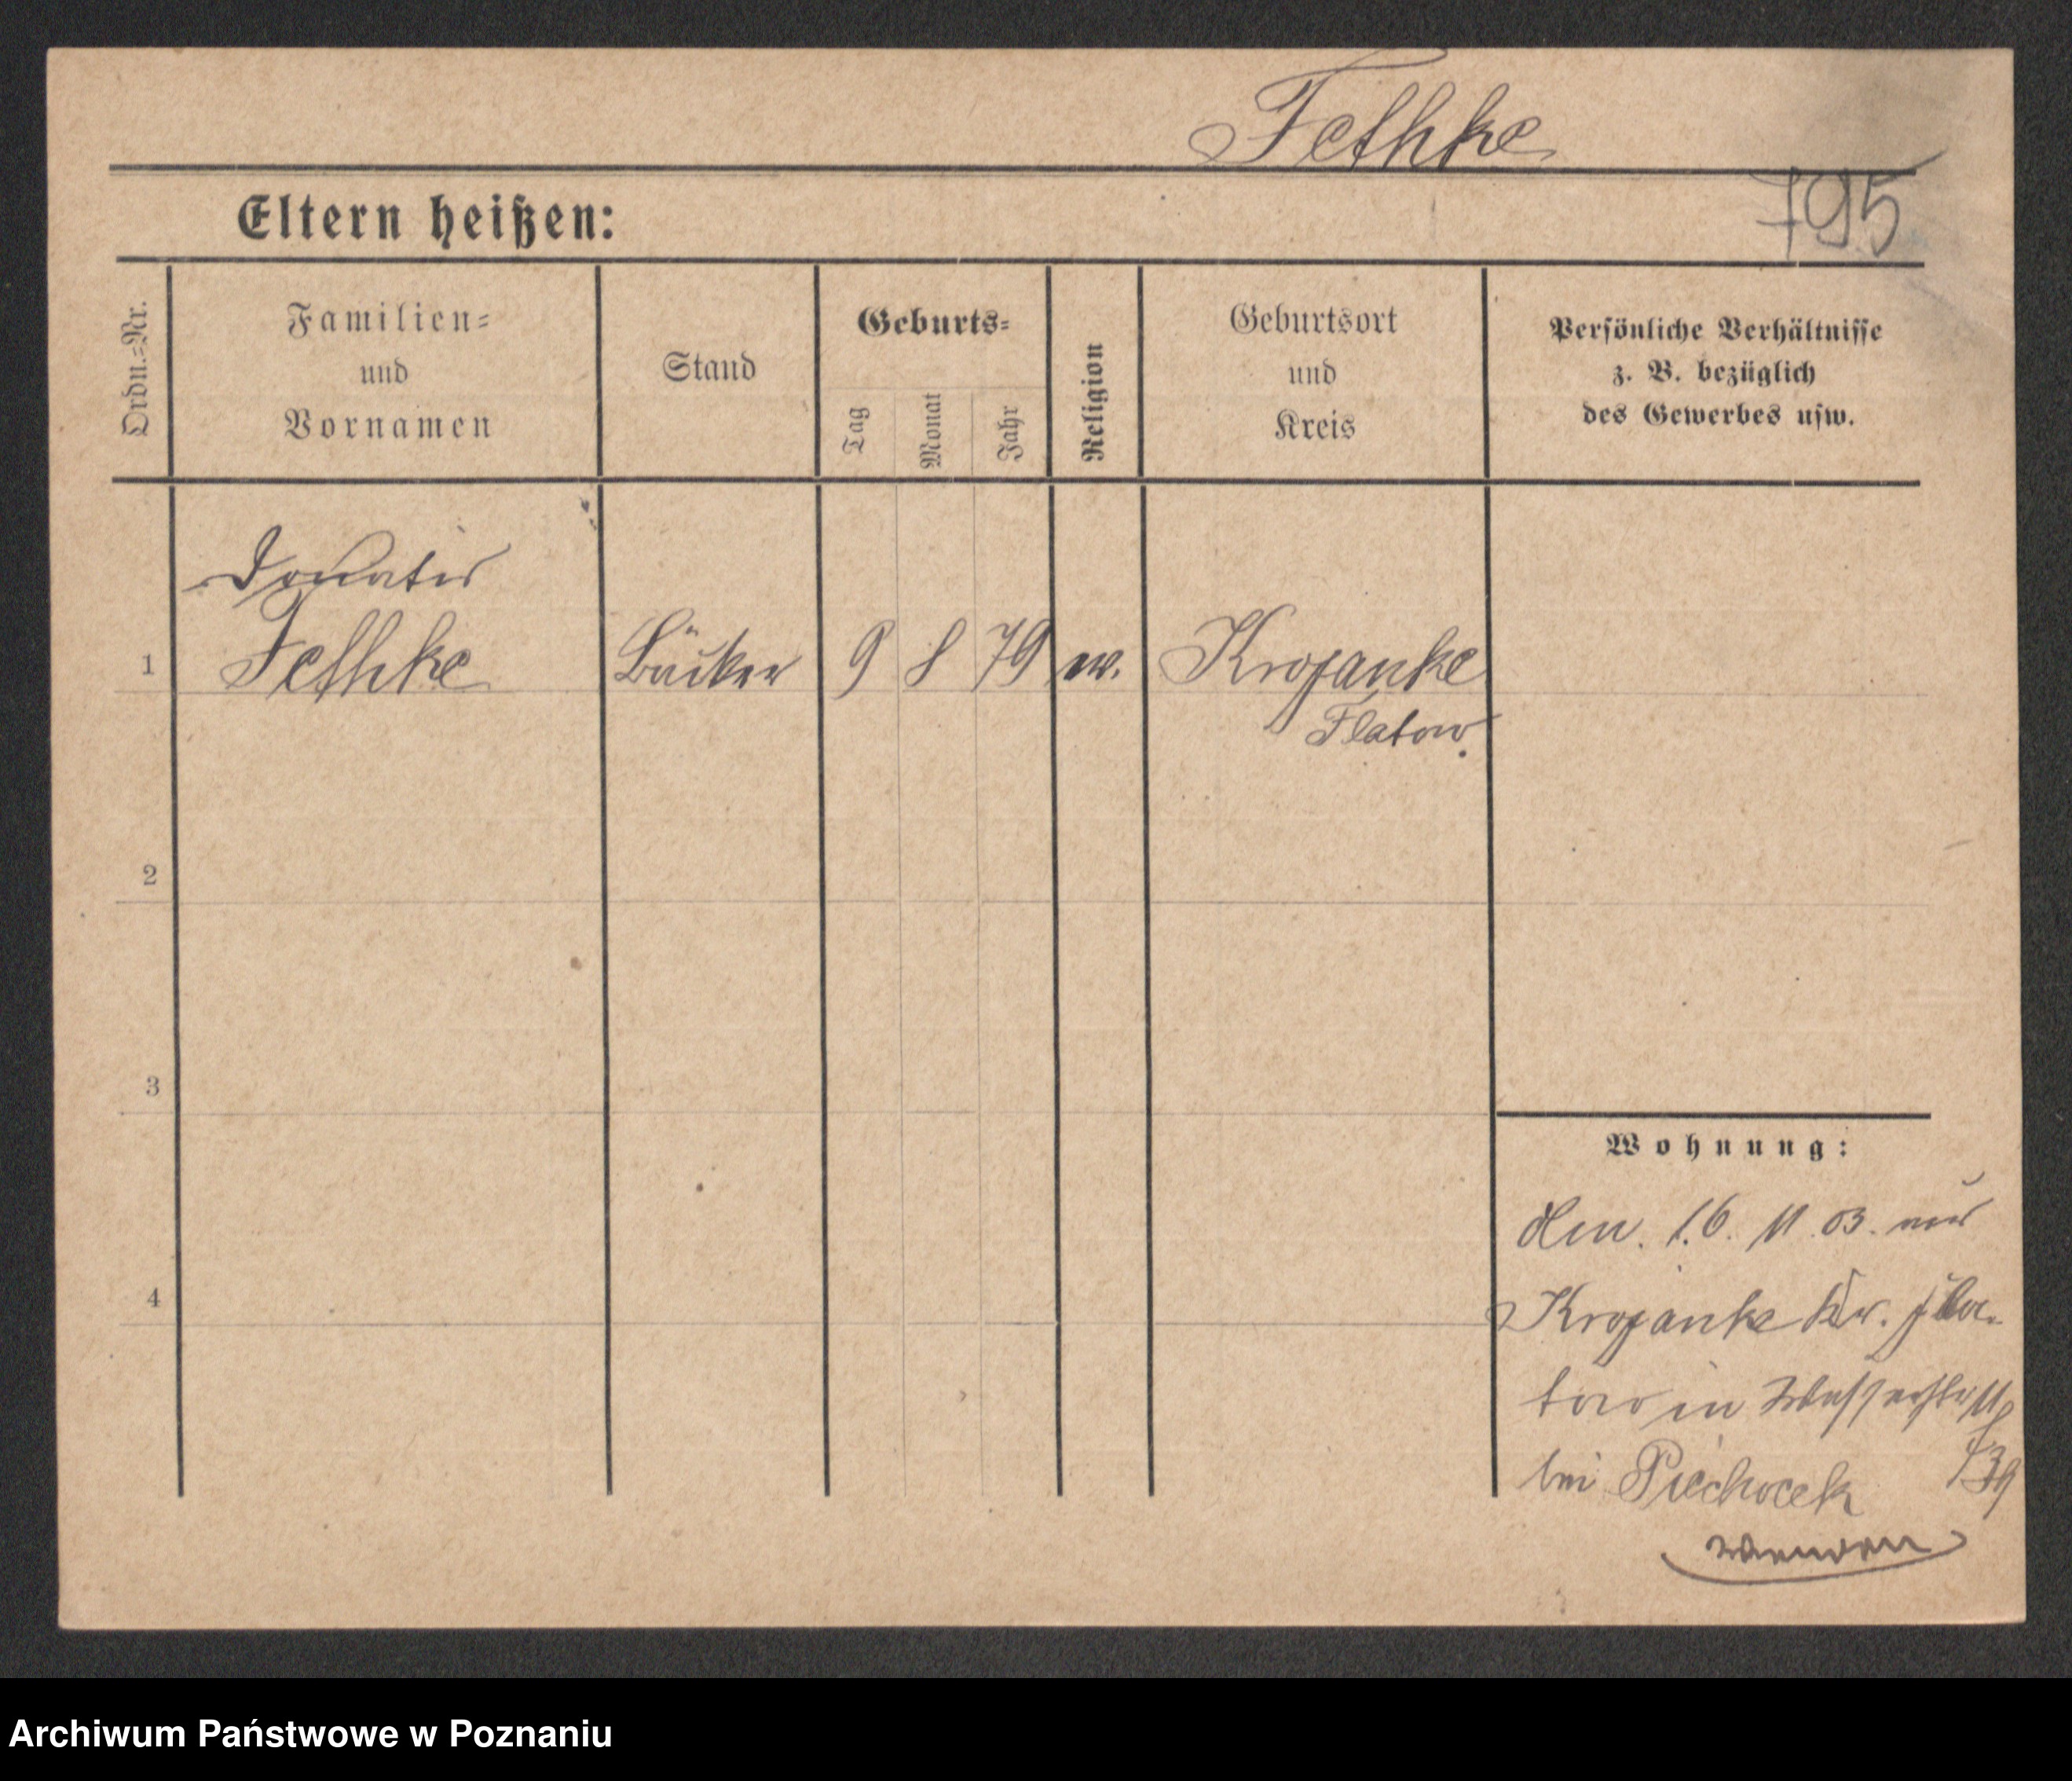 Fethke
795
Eltern heißen:
Ordn.=Nr.
Familien=
und
Vornamen
Stand
Geburts=
Tag
Monat
Jahr
Religion
Geburtsort
und
Kreis
Persönliche Verhältnisse
z. B. bezüglich
des Gewerbes usw.
1
Fethke
Bäcker
9
8
79
Krojanke
Flatow
2
3
4
Wohnung:
16. 11. 03. aus
Krojanke Kr. Fla-
tow in
bei Piechocek
wenden
Archiwum Państwowe w Poznaniu